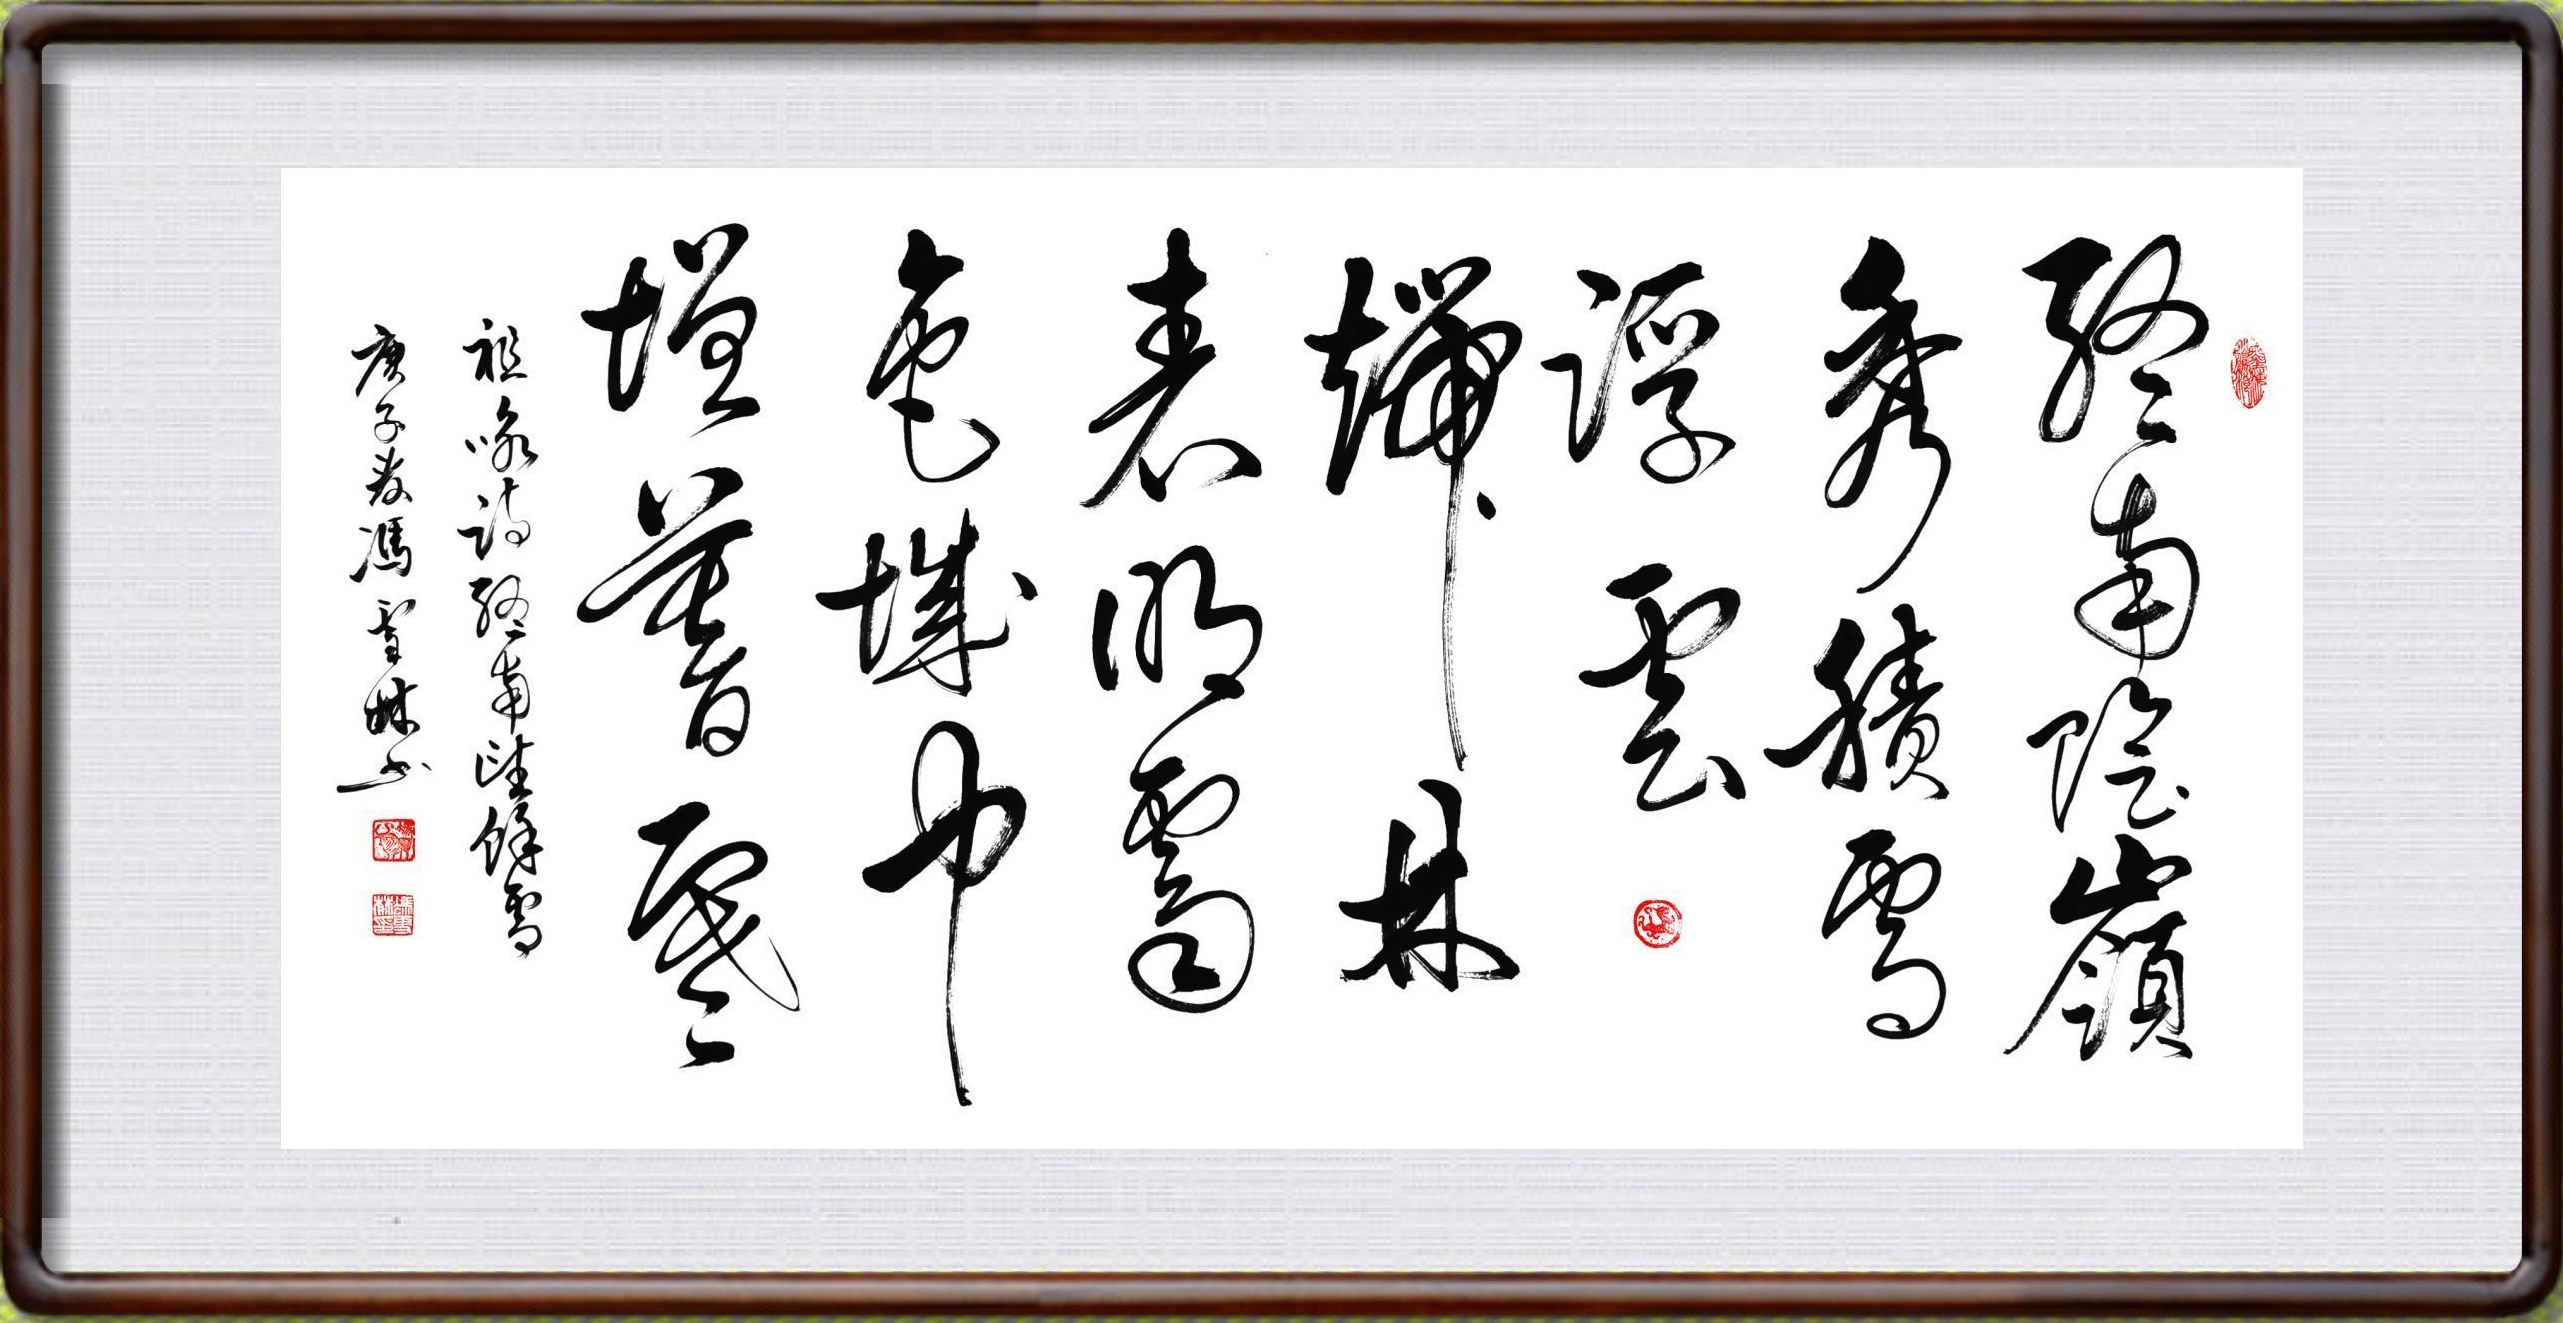 終南陰嶺
秀積雪
浮雲
端林
表明霽
色城中
增暮寒
祖咏詩終南望餘雪
庚子春馮雪林书